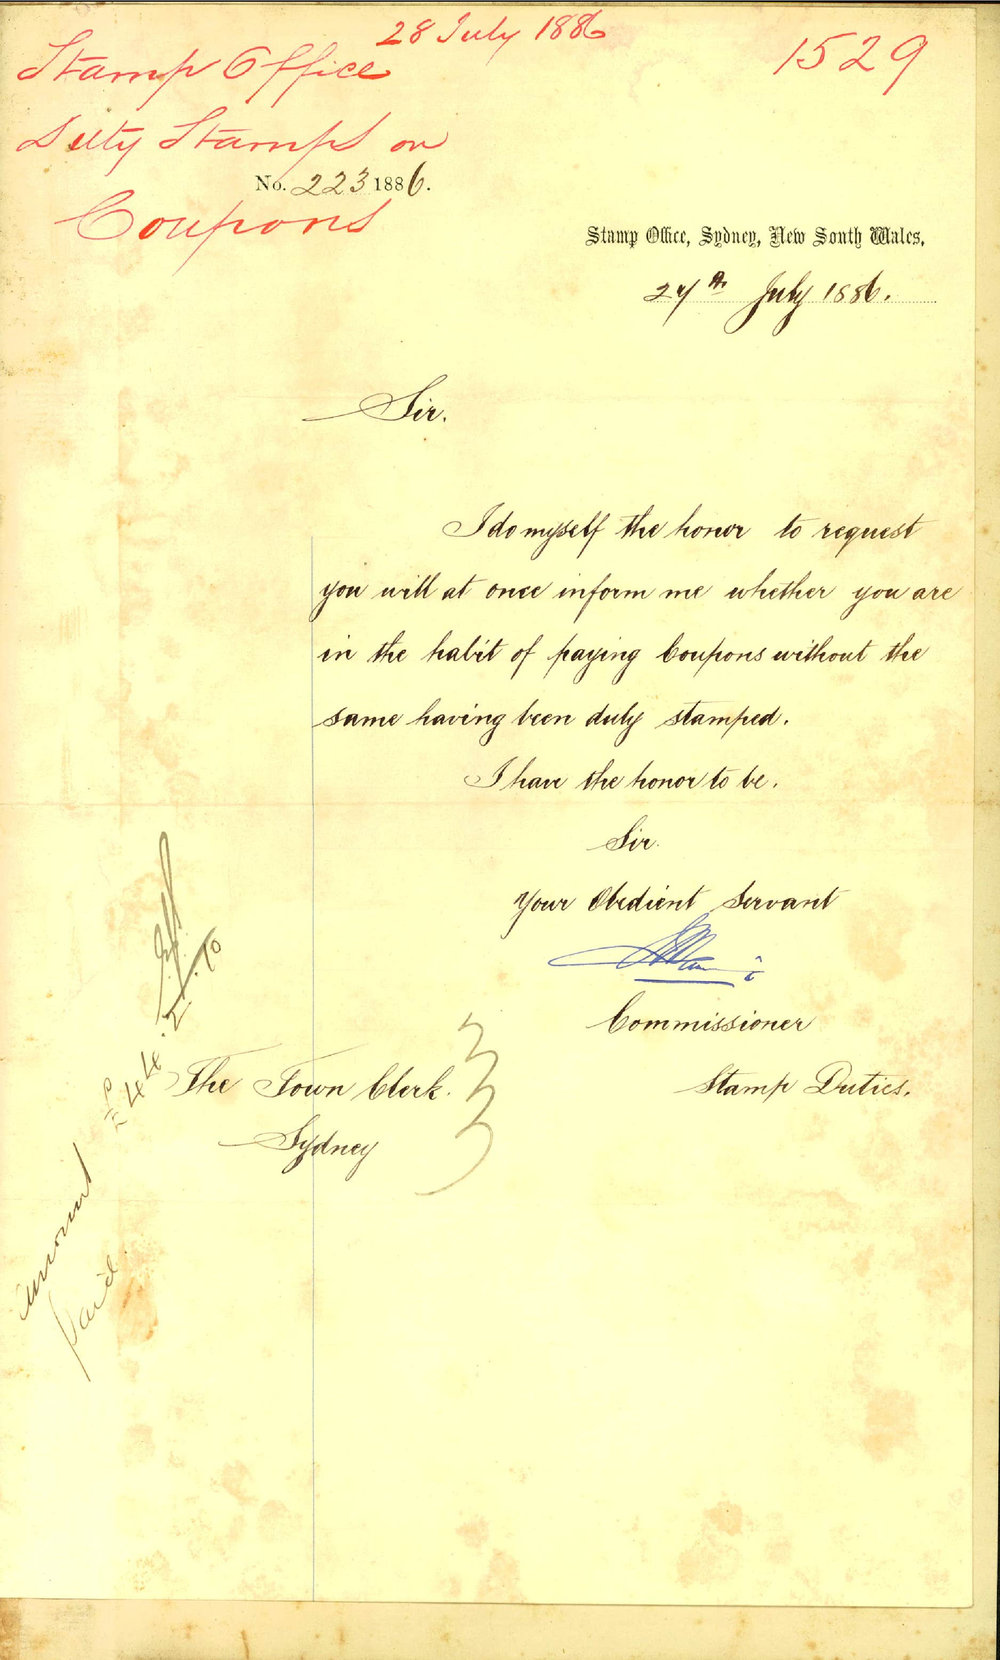 28 July 1886
1529
Stamp Office
Duty Stamps on
No. 223 1886.
Coupons
Stamp Office, Sydney, New South Wales,
27th July 1886.
Sir.
I do myself the honor to request
you will at once inform me whether you are
in the habit of paying Coupons without the
same having been duly stamped.
I have the honor to be.
Sir.
Your Obedient Servant
Commissioner
The Town Clerk.
Stamp Duties.
Sydney
amount
paid